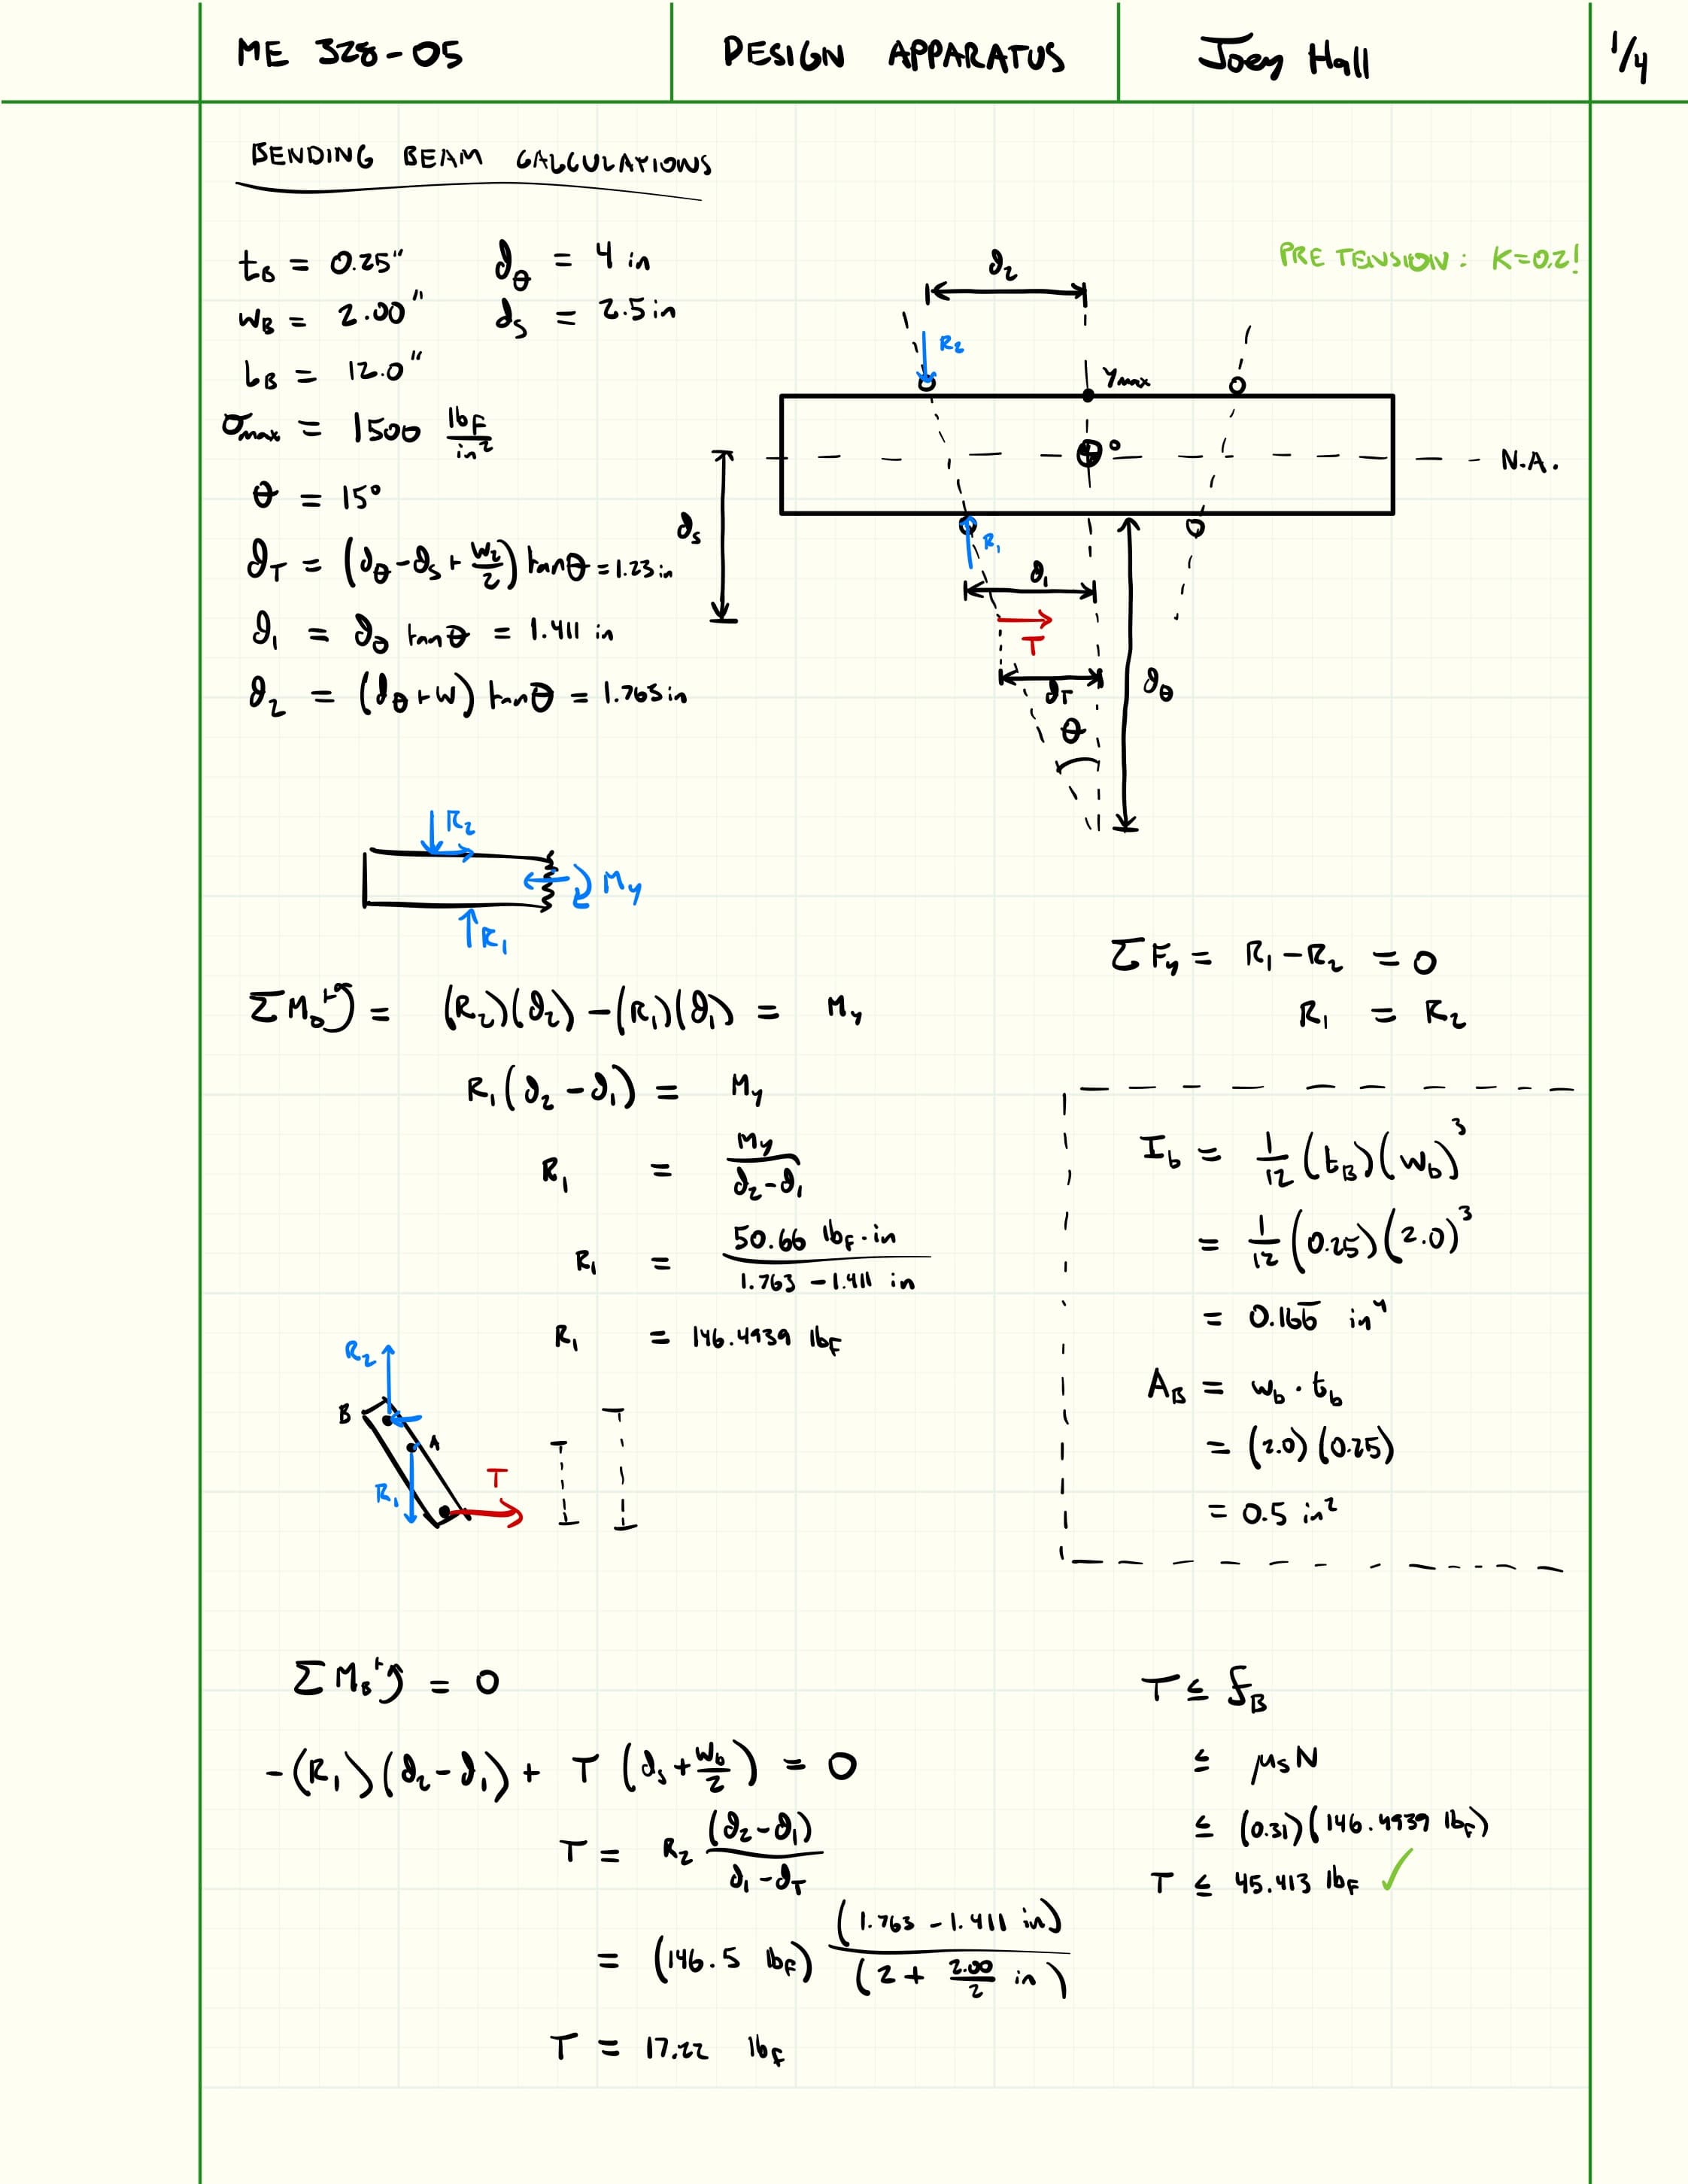 ME 328-05 DESIGN APPARATUS Joey Hall 1/4
BENDING BEAM CALCULATIONS
PRETENSION: K=0.2!
t_B = 0.25" d_θ = 4 in
w_B = 2.00" d_s = 2.5 in
L_B = 12.0"
σ_max = 1500 lb_F/in²
θ = 15°
d_T = (d_θ - d_s + w_2/2) tanθ = 1.23 in
d_1 = d_θ tanθ = 1.411 in
d_2 = (d_θ + w) tanθ = 1.763 in
d_2
R_2
y_max
o
N.A.
d_s
R_1
d_1
T
d_T
d_θ
θ
R_2
M_y
R_1
ΣF_y = R_1 - R_2 = 0
R_1 = R_2
ΣM_o⁺↺ = (R_2)(d_2) - (R_1)(d_1) = M_y
R_1(d_2 - d_1) = M_y
R_1 = M_y/(d_2 - d_1)
R_1 = 50.66 lb_F·in / 1.763 - 1.411 in
R_1 = 146.4939 lb_F
I_b = 1/12 (t_B)(w_b)³
= 1/12 (0.25)(2.0)³
= 0.166̅ in⁴
A_B = w_b · t_b
= (2.0)(0.25)
= 0.5 in²
R_2
B
A
R_1
T
ΣM_B⁺↺ = 0
-(R_1)(d_2 - d_1) + T (d_s + w_b/2) = 0
T = R_2 (d_2 - d_1)/(d_1 - d_T)
= (146.5 lb_F) (1.763 - 1.411 in)/(2 + 2.00/2 in)
T = 17.22 lb_F
T ≤ f_B
≤ μ_s N
≤ (0.31)(146.4939 lb_F)
T ≤ 45.413 lb_F ✓